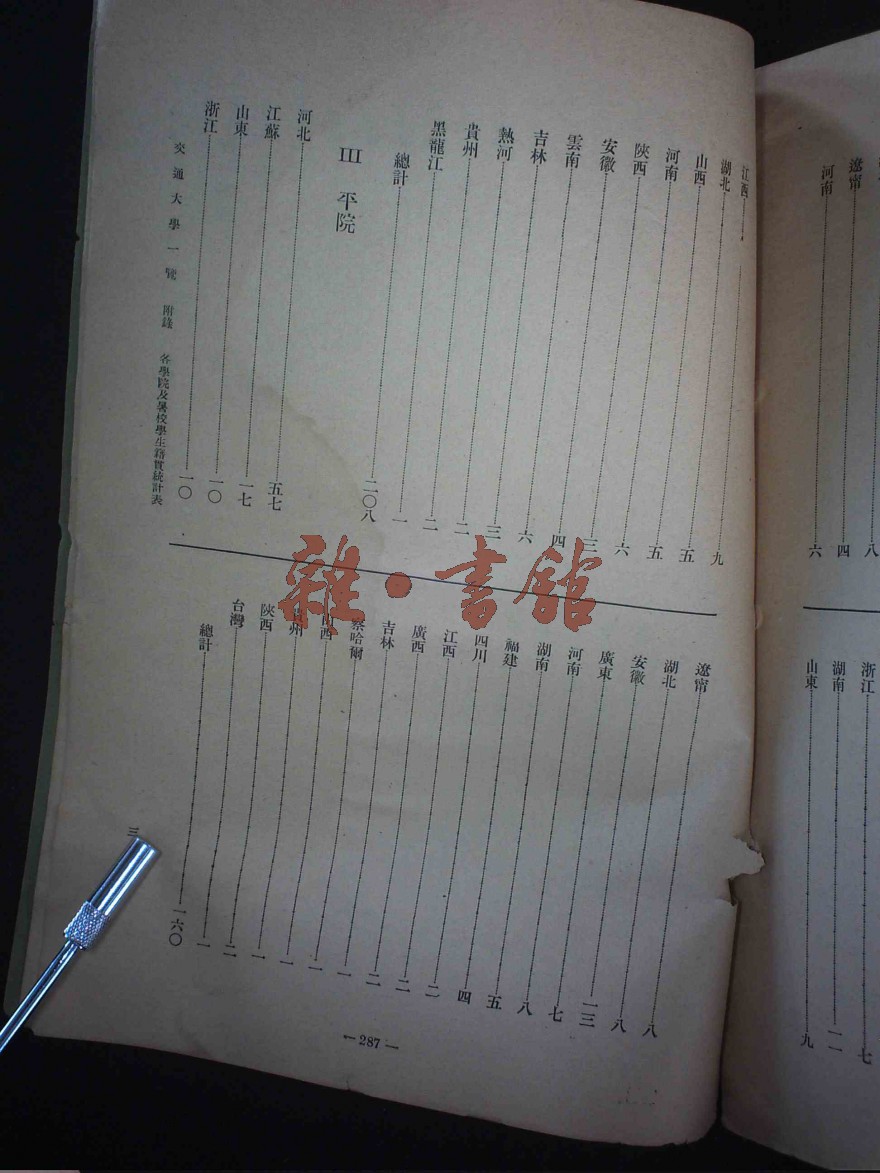 八
遼甯 四
河南 六
浙江 七
湖南 一一
山東 九
江西 九
湖北 五
山西 五
河南 六
陝西 三
安徽 四
雲南 六
吉林 三
熱河 二
貴州 二
黑龍江 一
總計 二〇八
III 平院
河北 五七
江蘇 一七
山東 一〇
浙江 一〇
遼甯 八
湖北 八
安徽 一三
廣東 七
河南 八
湖南 五
福建 四
四川 二
江西 二
廣西 二
吉林 一
察哈爾 一
山西 一
貴州 一
陝西 二
台灣 一
總計 一六〇
交通大學一覽 附錄 各學院及暑校學生籍貫統計表
三
—287—
雜·書館